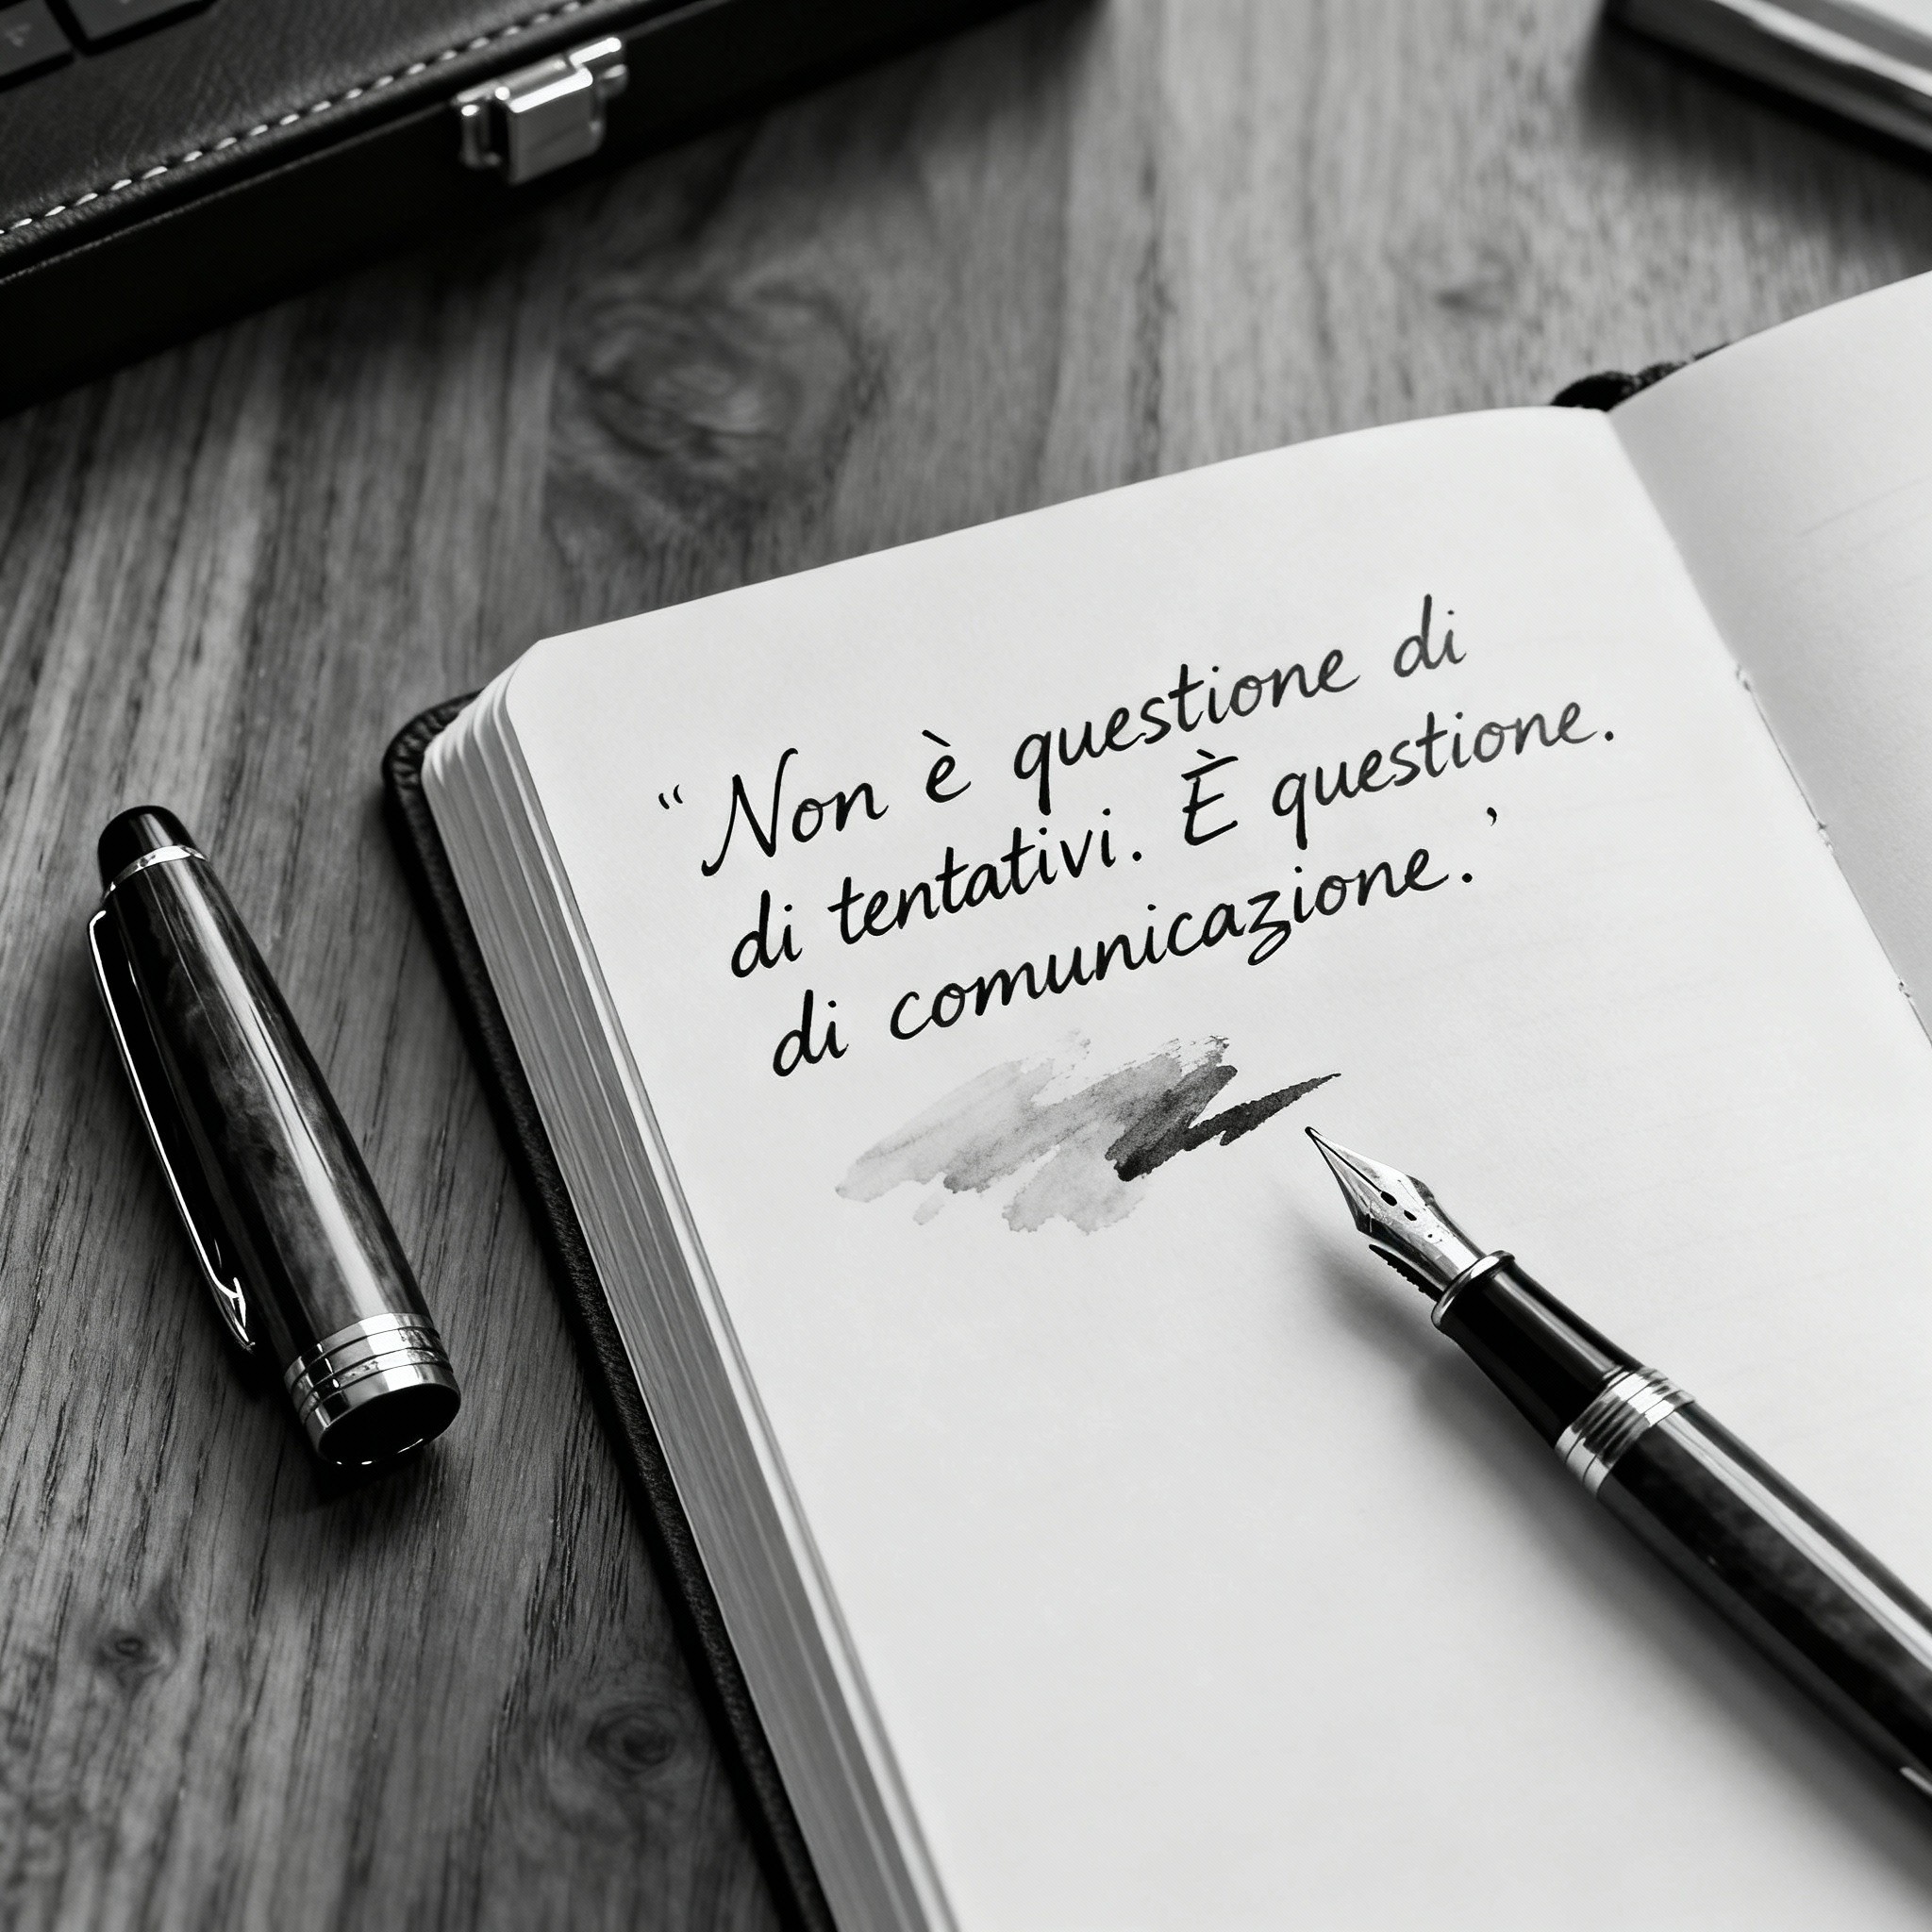 “Non è questione di
di tentativi. È questione.
di comunicazione.’